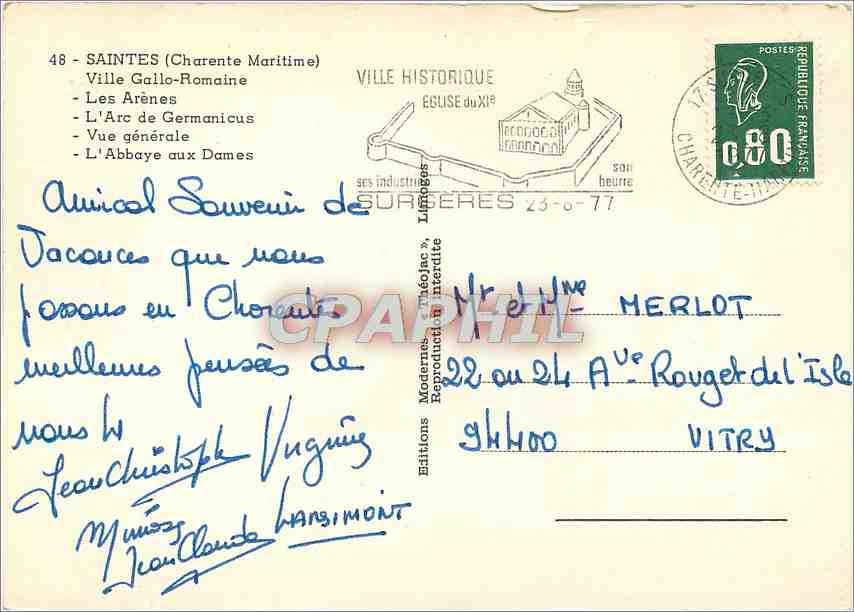 48 - SAINTES (Charente Maritime)
Ville Gallo-Romaine
- Les Arènes
- L'Arc de Germanicus
- Vue générale
- L'Abbaye aux Dames
VILLE HISTORIQUE
EGLISE du XIe
ses industries
son
beurre
SURGERES 23-8-77
CHARENTE-MARITIME
POSTES
REPUBLIQUE FRANÇAISE
0,80
Amical Souvenir de
Vacances que nous
passons en Charentes
meilleures pensées de
nous 4
Jean Christophe Virginie
Jean Claude LARSIMONT
Editions Modernes « Théojac », Limoges
Reproduction interdite
Mr. et Mme MERLOT
22 ou 24 Ave Rouget del'Isle
94400 VITRY
CPAPHIL